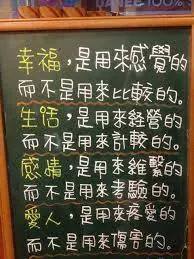 幸福，是用來感覺的
而不是用來比較的。
生活，是用來經營的
而不是用來計較的。
感情，是用來維繫的
而不是用來考驗的。
愛人，是用來疼愛的
而不是用來傷害的。